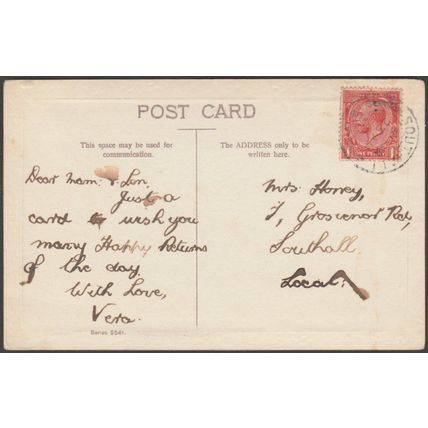 POST CARD
This space may be used for
communication.
The ADDRESS only to be
written here.
Dear Mam & Len,
Just a
card to wish you
many Happy Returns
of the day.
With Love,
Vera.
Series 5541.
Mrs Honey,
7, Grosvenor Rd,
Southall.
Local.